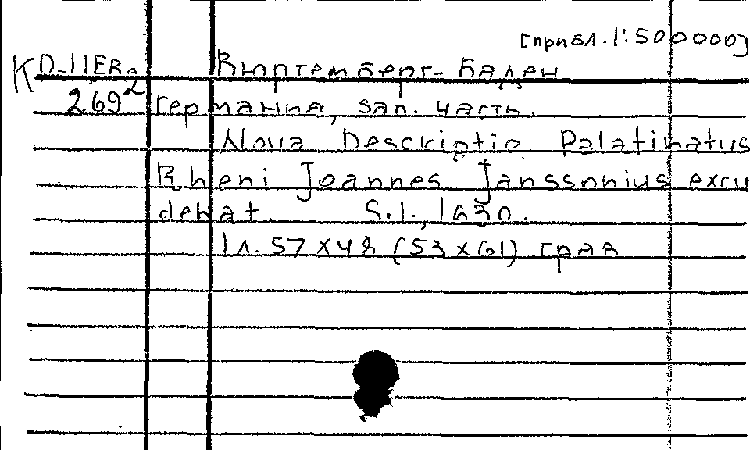 [прибл. 1:500000]
К D-11ER2 Вюртемберг-Баден
269 Германия, зап. часть.
Nova Descriptio Palatinatus
Rheni Joannes Janssonius excu
debat S.l., 1630.
1 л. 57 x 48 (53 x 61) грав